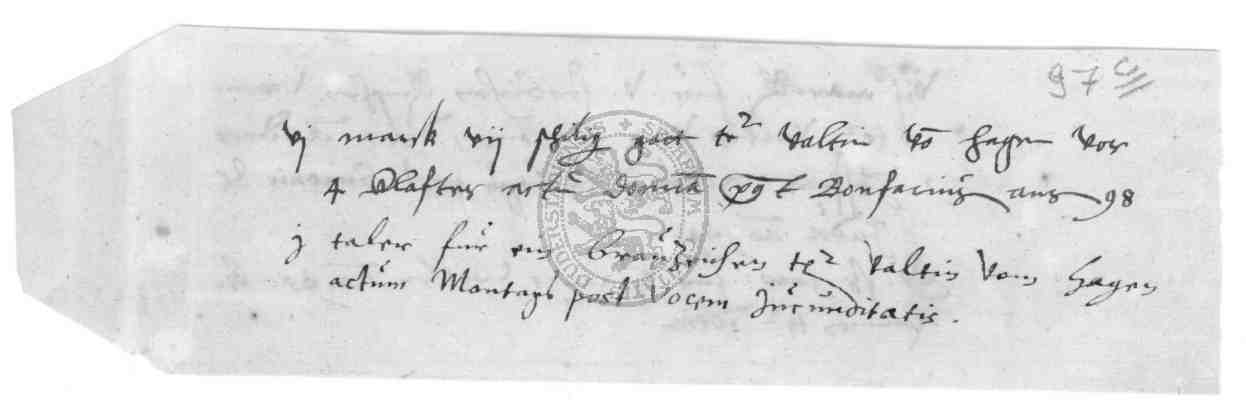 97
vj marck vij schilig gaet tr Valtin vo hagen vor
4 Clafter actu domica post Bonifacius ano 98
j taler für ein brauzeichen tr Valtin vom Hagen
actum Montags post vocem Jucunditatis.